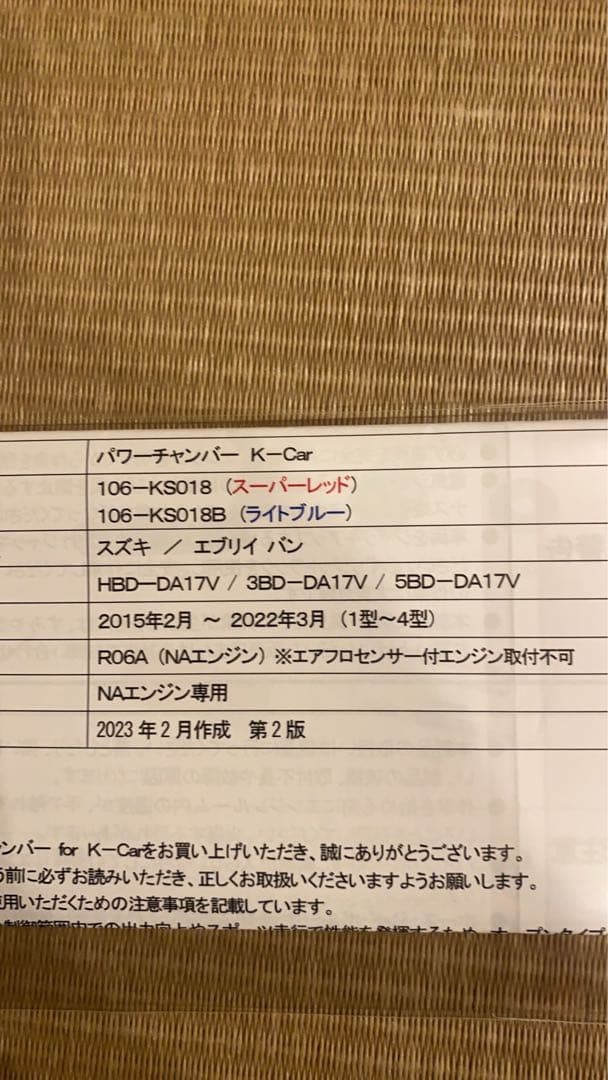 パワーチャンバー K－Car
106－KS018（スーパーレッド）
106－KS018B（ライトブルー）
スズキ ／ エブリイ バン
HBD－DA17V / 3BD－DA17V / 5BD－DA17V
2015年2月 ～ 2022年3月（1型～4型）
R06A（NAエンジン）※エアフロセンサー付エンジン取付不可
NAエンジン専用
2023年2月作成 第2版
ンバー for K－Carをお買い上げいただき、誠にありがとうございます。
前に必ずお読みいただき、正しくお取扱いくださいますようお願いします。
用いただくための注意事項を記載しています。